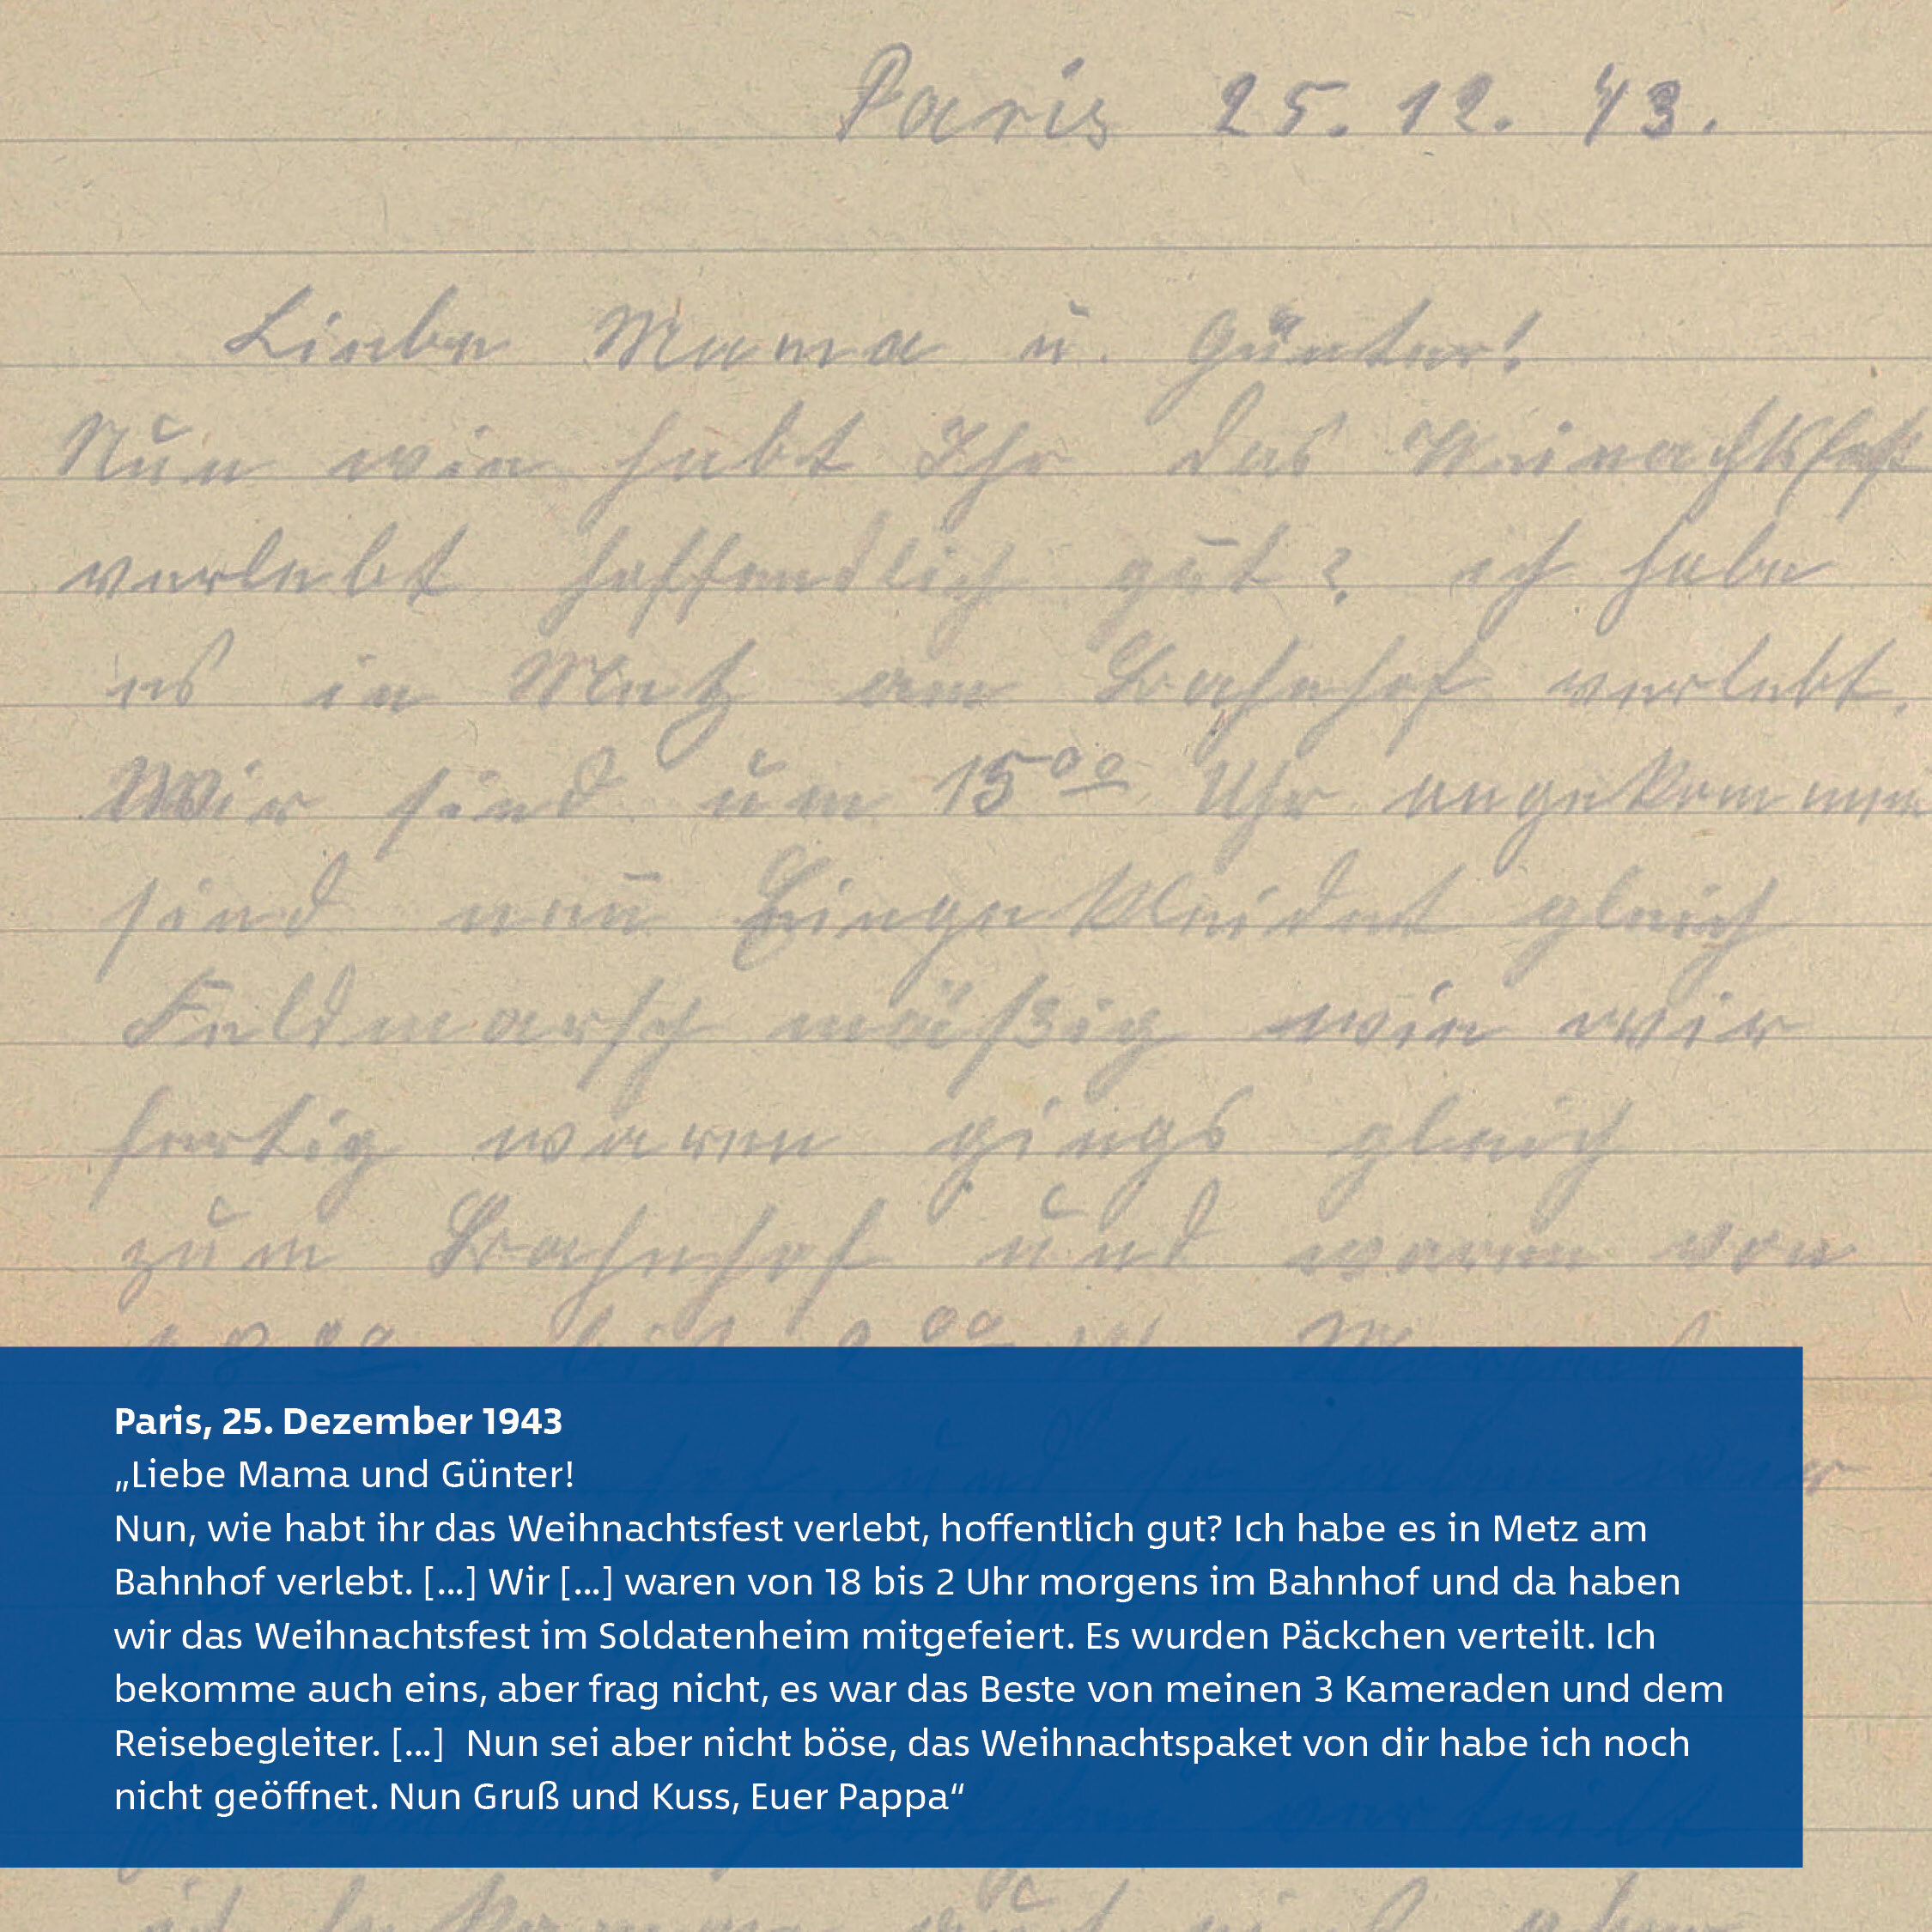 Paris 25. 12. 43.
Liebe Mama u. Günter!
Nun wie habt Ihr das Weinachtsfest
verlebt hoffendlich gut? ich habe
es in Metz am Bahnhof verlebt.
Wir sind um 15⁰⁰ Uhr angekommen
sind neu Eingekleidet gleich
Feldmarsch mäßig wie wir
fertig waren gings gleich
zum Bahnhof und waren von
18⁰⁰ bis 2⁰⁰ Uhr
Paris, 25. Dezember 1943
„Liebe Mama und Günter!
Nun, wie habt ihr das Weihnachtsfest verlebt, hoffentlich gut? Ich habe es in Metz am
Bahnhof verlebt. [...] Wir [...] waren von 18 bis 2 Uhr morgens im Bahnhof und da haben
wir das Weihnachtsfest im Soldatenheim mitgefeiert. Es wurden Päckchen verteilt. Ich
bekomme auch eins, aber frag nicht, es war das Beste von meinen 3 Kameraden und dem
Reisebegleiter. [...] Nun sei aber nicht böse, das Weihnachtspaket von dir habe ich noch
nicht geöffnet. Nun Gruß und Kuss, Euer Pappa“